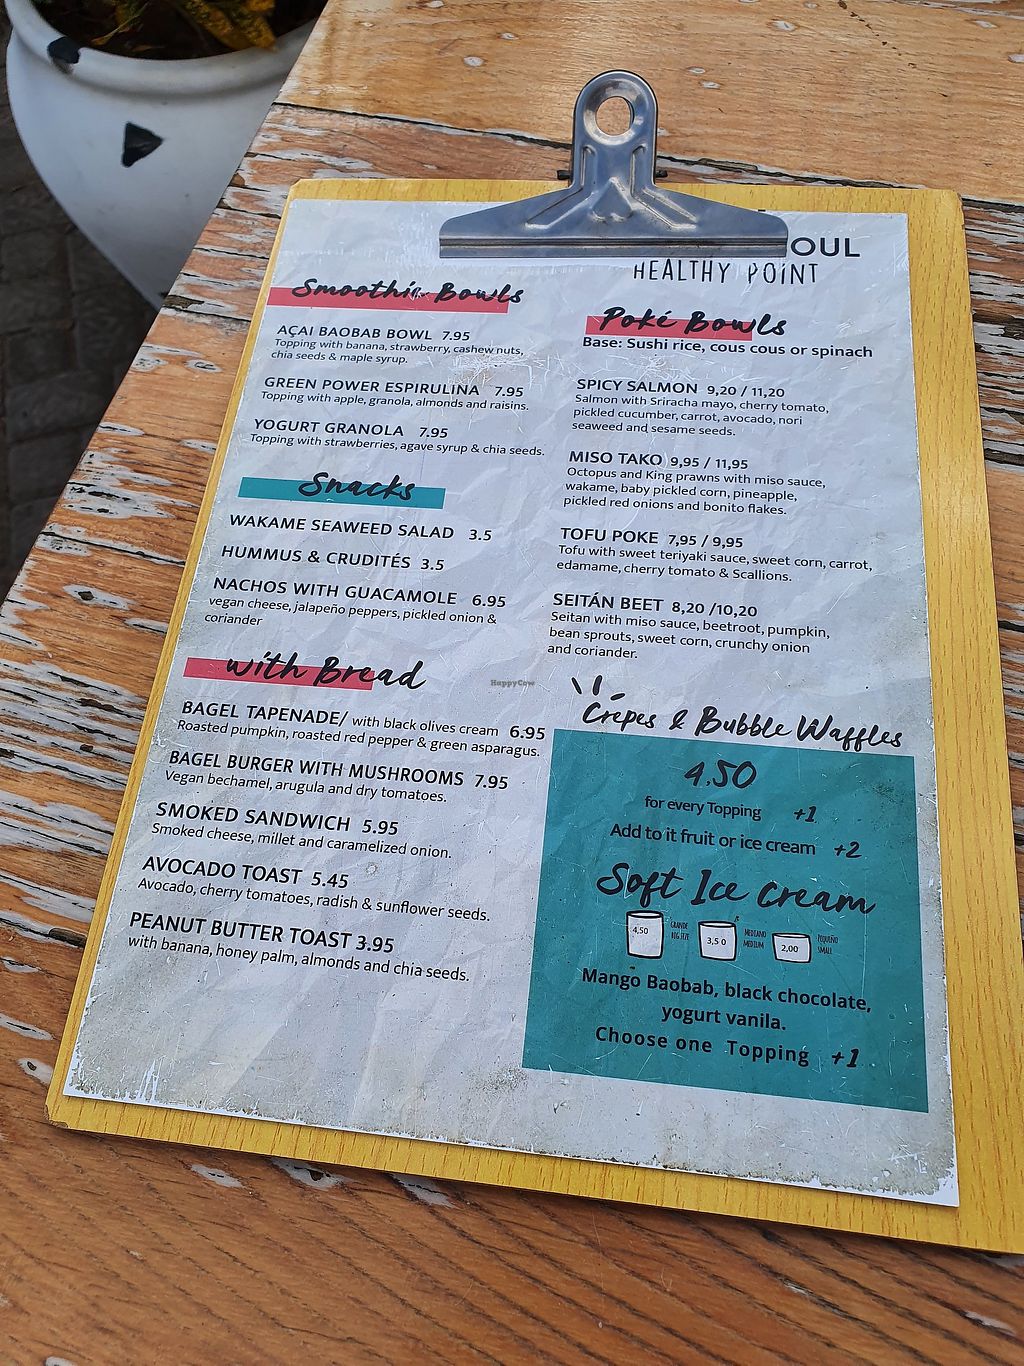 OUL
HEALTHY POINT
Smoothie Bowls
AÇAI BAOBAB BOWL 7.95
Topping with banana, strawberry, cashew nuts,
chia seeds & maple syrup.
GREEN POWER ESPIRULINA 7.95
Topping with apple, granola, almonds and raisins.
YOGURT GRANOLA 7.95
Topping with strawberries, agave syrup & chia seeds.
Snacks
WAKAME SEAWEED SALAD 3.5
HUMMUS & CRUDITÉS 3.5
NACHOS WITH GUACAMOLE 6.95
vegan cheese, jalapeño peppers, pickled onion &
coriander
with Bread
BAGEL TAPENADE/ with black olives cream 6.95
Roasted pumpkin, roasted red pepper & green asparagus.
BAGEL BURGER WITH MUSHROOMS 7.95
Vegan bechamel, arugula and dry tomatoes.
SMOKED SANDWICH 5.95
Smoked cheese, millet and caramelized onion.
AVOCADO TOAST 5.45
Avocado, cherry tomatoes, radish & sunflower seeds.
PEANUT BUTTER TOAST 3.95
with banana, honey palm, almonds and chia seeds.
Poké Bowls
Base: Sushi rice, cous cous or spinach
SPICY SALMON 9,20 / 11,20
Salmon with Sriracha mayo, cherry tomato,
pickled cucumber, carrot, avocado, nori
seaweed and sesame seeds.
MISO TAKO 9,95 / 11,95
Octopus and King prawns with miso sauce,
wakame, baby pickled corn, pineapple,
pickled red onions and bonito flakes.
TOFU POKE 7,95 / 9,95
Tofu with sweet teriyaki sauce, sweet corn, carrot,
edamame, cherry tomato & Scallions.
SEITÁN BEET 8,20 /10,20
Seitan with miso sauce, beetroot, pumpkin,
bean sprouts, sweet corn, crunchy onion
and coriander.
HappyCow
Crepes & Bubble Waffles
4.50
for every Topping +1
Add to it fruit or ice cream +2
Soft Ice Cream
4,50 GRANDE BIG SIZE 3,50 MEDIANO MEDIUM 2,00 PEQUEÑO SMALL
Mango Baobab, black chocolate,
yogurt vanila.
Choose one Topping +1